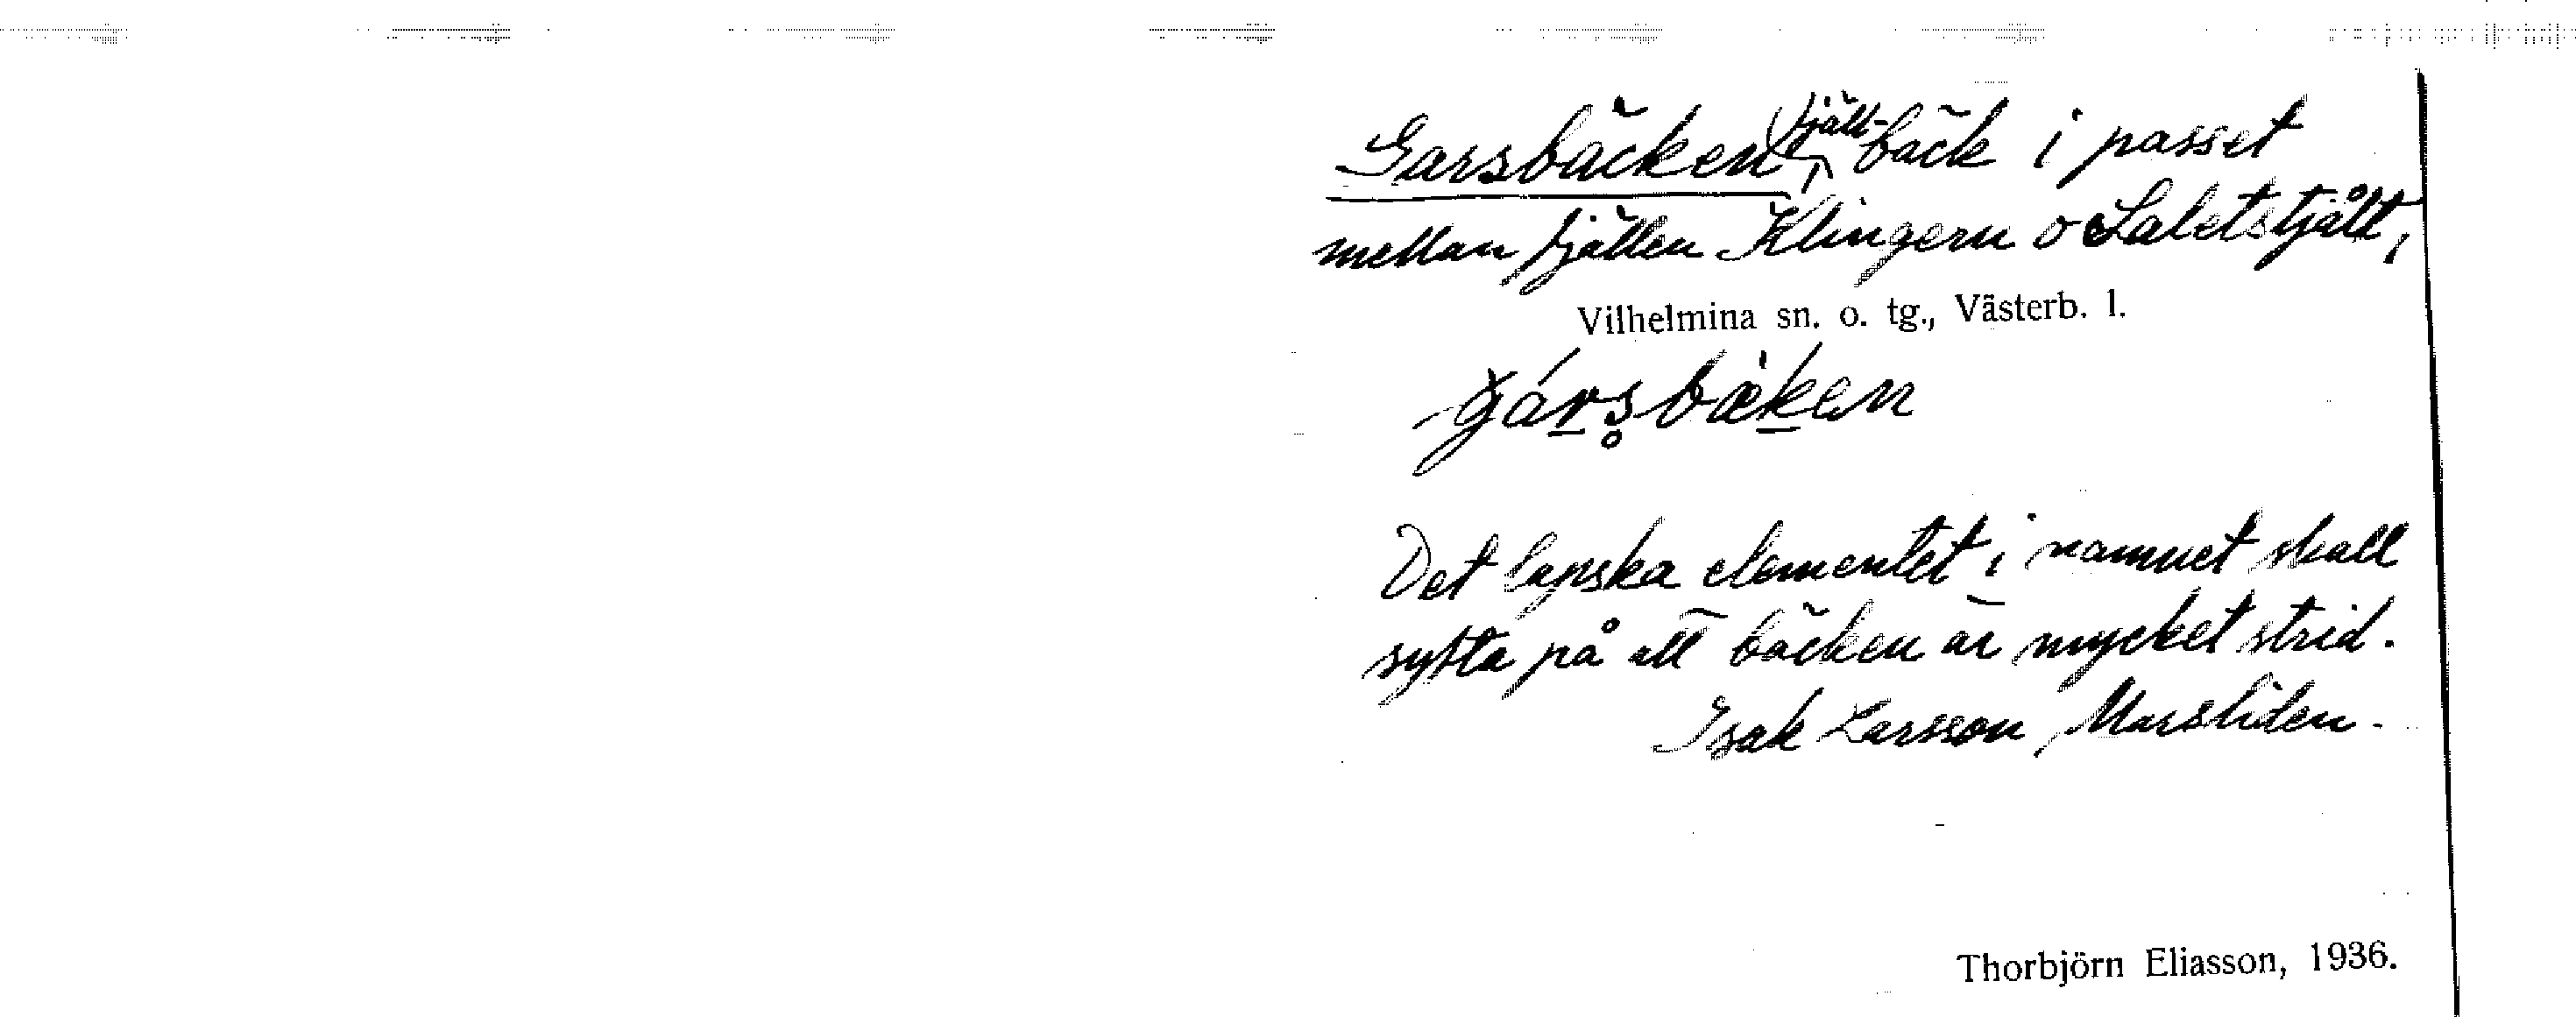 Garsbäcken, fjäll-bäck i passet
mellan fjällen Klingern o Saletstjålt,
Vilhelmina sn. o. tg., Västerb. l.
gársbæken
Det lapska elementet i namnet skall
syfta på att bäcken är mycket strid.
Isak Larsson, Marsliden.
Thorbjörn Eliasson, 1936.